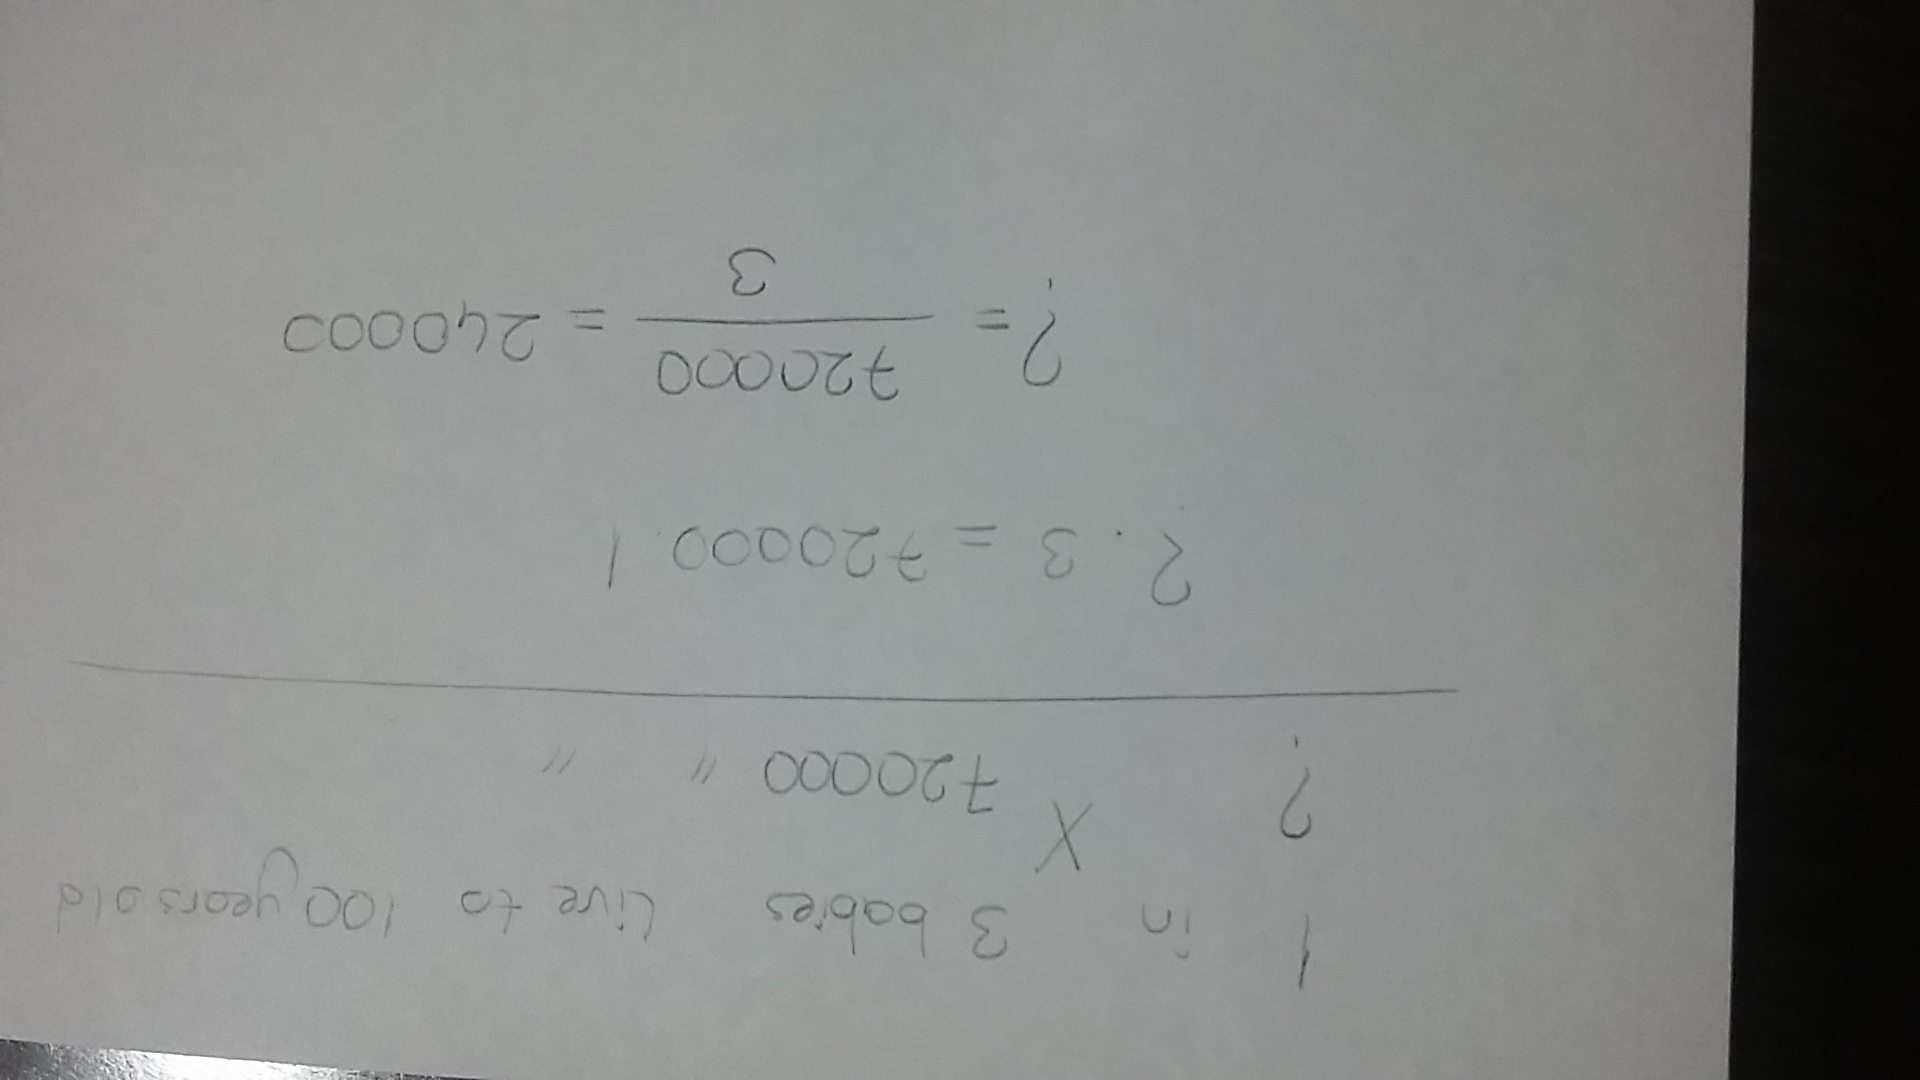 1 in 3 babies live to 100 years old
X
? 720000 " "
? . 3 = 720000 . 1
? = 720000 / 3 = 240000